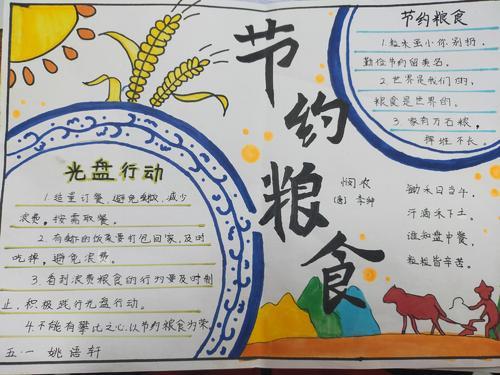 节约粮食
节约粮食
1.粒米虽小你别扔,
勤俭节约留美名。
2.世界是我们的,
粮食是世界的。
3.家有万石粮,
挥姓不长。
悯农
(唐) 李绅
锄禾日当午,
汗滴禾下土。
谁知盘中餐,
粒粒皆辛苦。
光盘行动
1.适量订餐,避免剩饭,减少
浪费,按需取餐。
2.有剩的饭菜要打包回家,及时
吃掉,避免浪费。
3.看到浪费粮食的行为要及时制
止,积极践行光盘行动。
4.不能有攀比之心,以节约粮食为荣
五·一 姚语轩